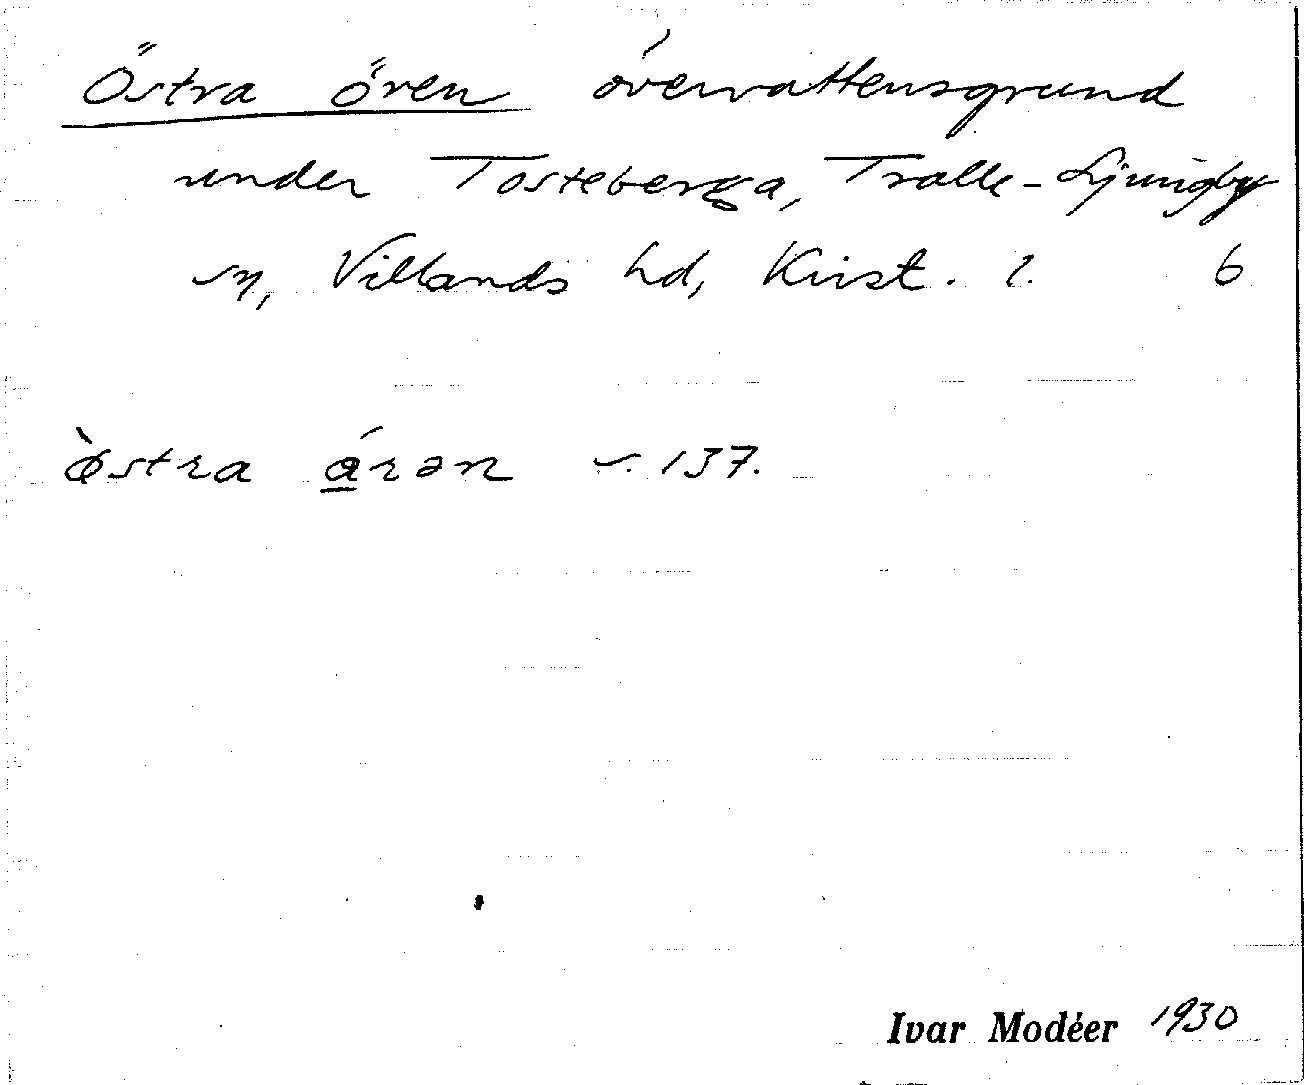 Östra ören övervattensgrund
under Tosteberga, Tralle-Ljungby
sn, Villands hd, Krist. l. 6
ø̀stra á̲rən s. 137.
Ivar Modéer 1930